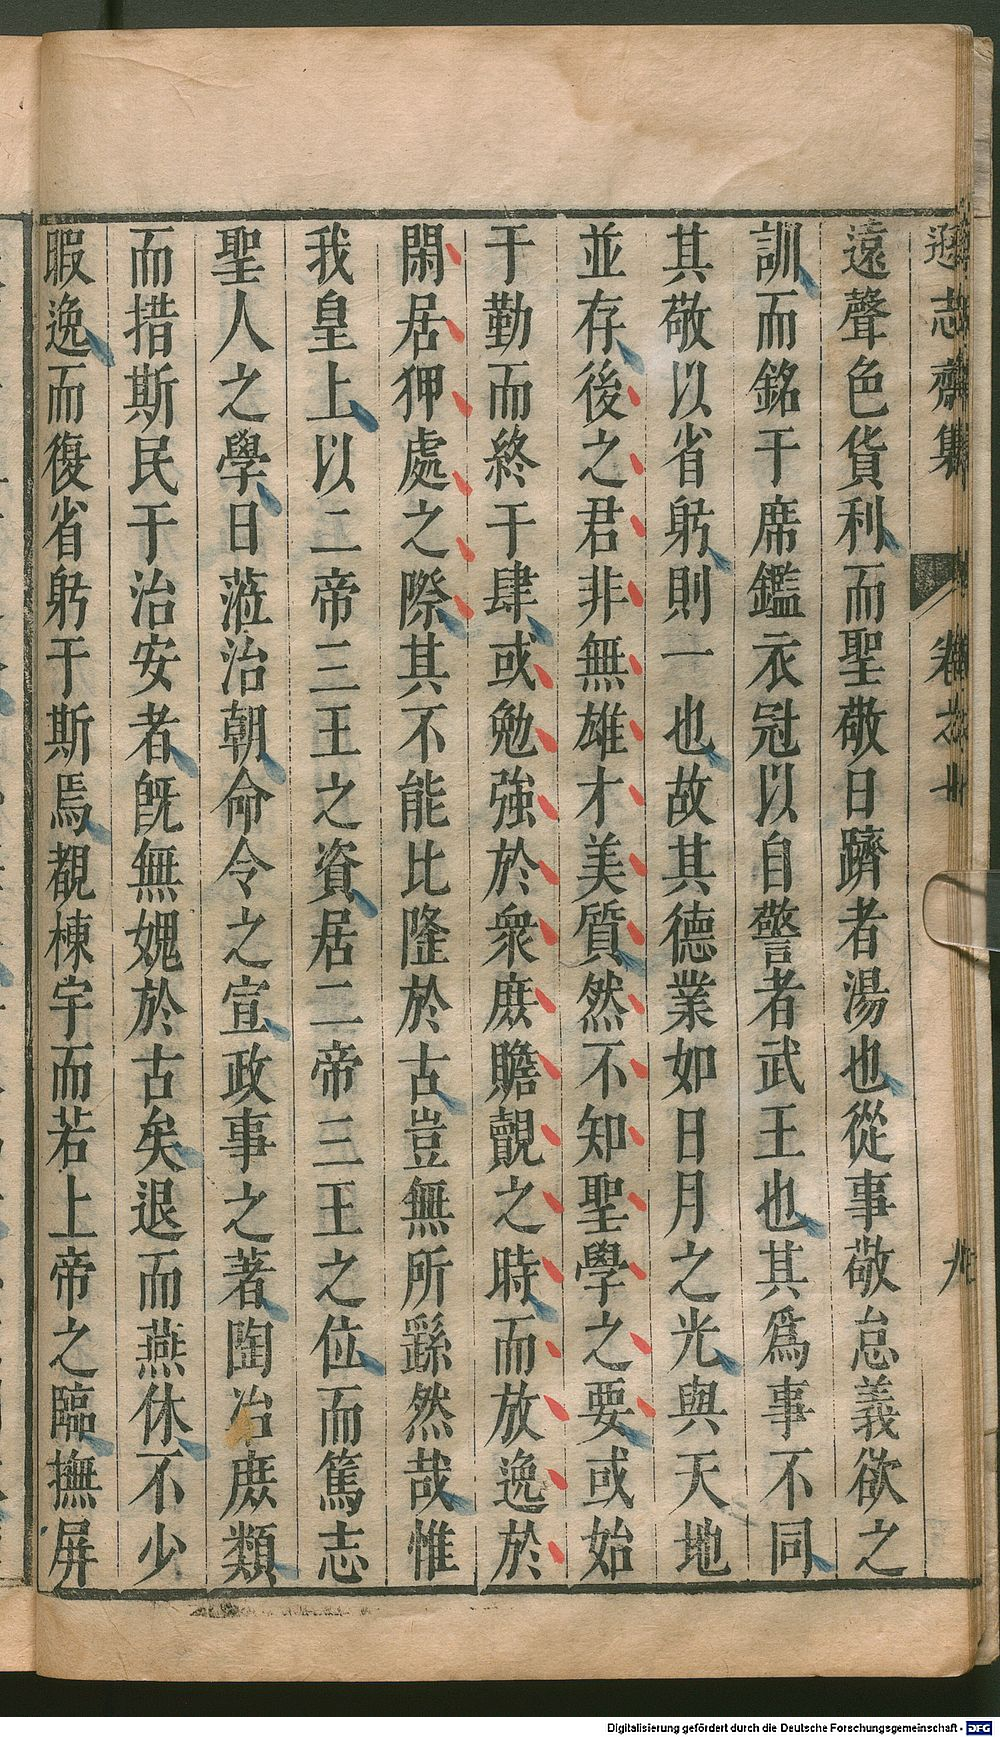 遜志齋集
卷之十
九
遠聲色貨利而聖敬日躋者湯也從事敬怠義欲之
訓而銘于席鑑衣冠以自警者武王也其爲事不同
其敬以省躬則一也故其德業如日月之光與天地
並存後之君非無雄才美質然不知聖學之要或始
于勤而終于肆或勉強於衆庶贍覩之時而放逸於
閑居狎處之際其不能比隆於古豈無所繇然哉惟
我皇上以二帝三王之資居二帝三王之位而篤志
聖人之學日蒞治朝命令之宣政事之著陶冶庶類
而措斯民于治安者旣無媿於古矣退而燕休不少
暇逸而復省躬于斯焉覩棟宇而若上帝之臨撫屏
Digitalisierung gefördert durch die Deutsche Forschungsgemeinschaft - DFG